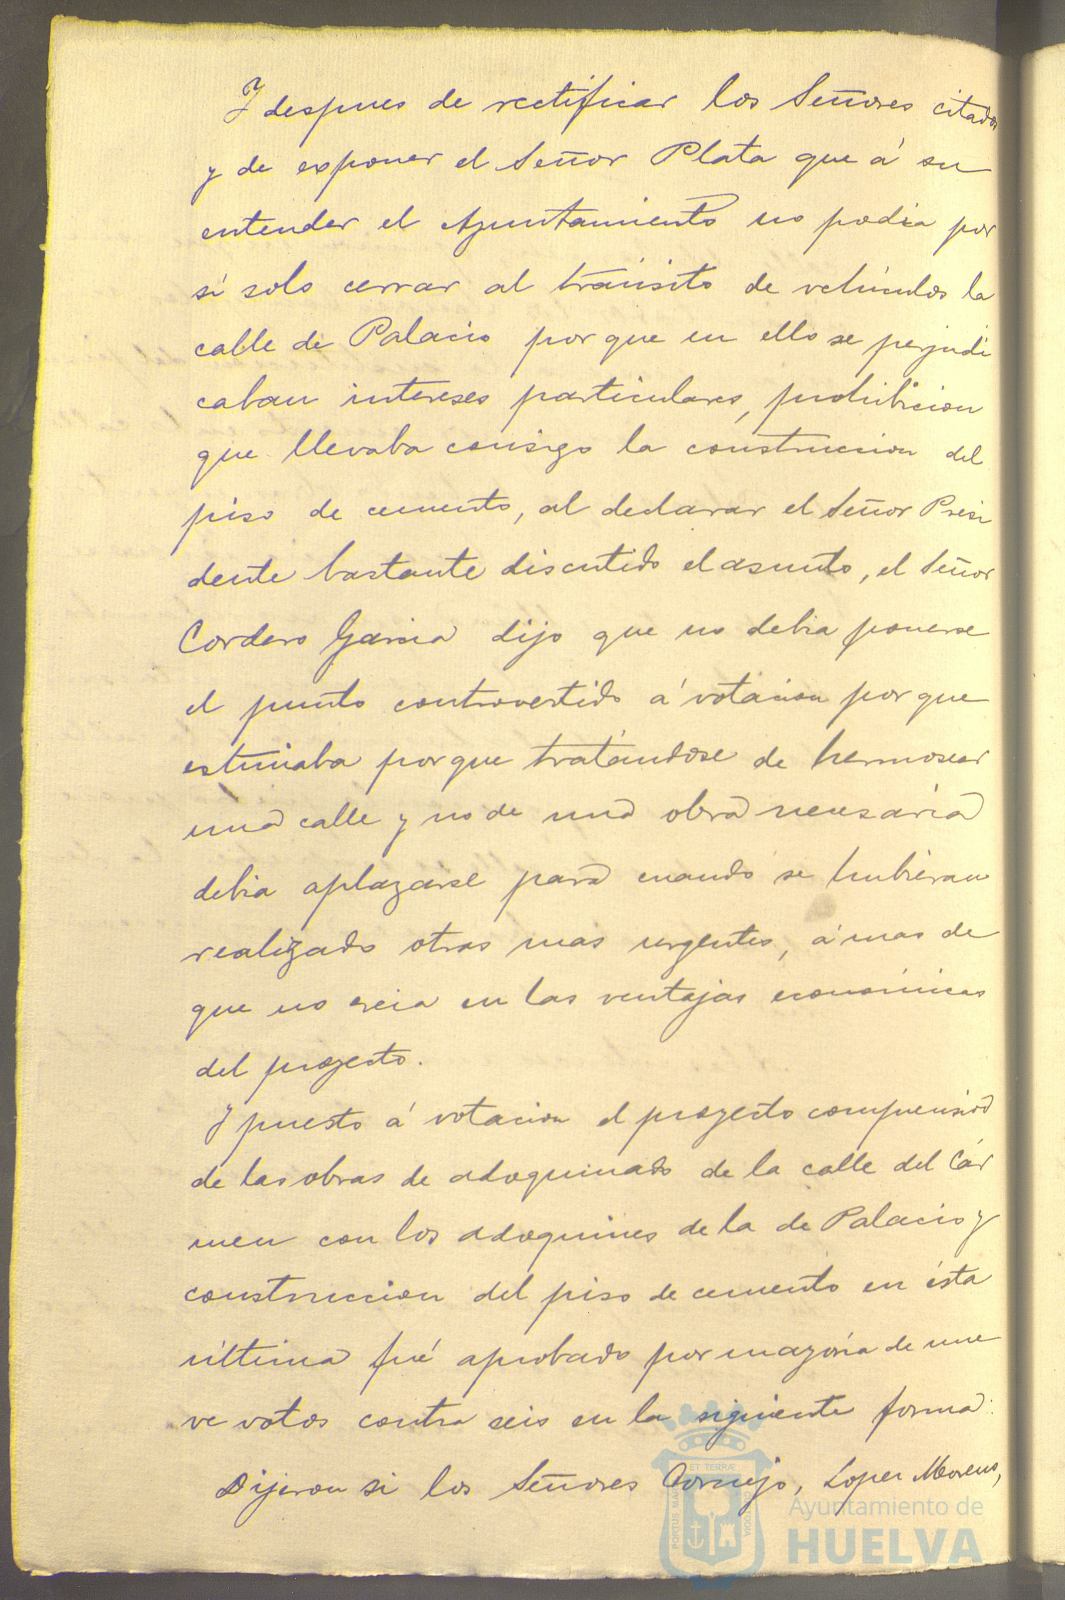 Y despues de rectificar los Señores citados
y de exponer el Señor Plata que á su
entender el Ayuntamiento no podia por
si solo cerrar al tránsito de vehículos la
calle de Palacio por que en ello se perjudi
caban intereses particulares, prohibicion
que llevaba consigo la construccion del
piso de cemento, al declarar el Señor Presi
dente bastante discutido el asunto, el Señor
Cordero Garcia dijo que no debia ponerse
el punto controvertido á votacion por que
estimaba porque tratándose de hermosear
una calle y no de una obra necesaria
debia aplazarse para cuando se hubieran
realizado otras mas urgentes, á mas de
que no creia en las ventajas económicas
del proyecto.
Y puesto á votacion el proyecto comprensivo
de las obras de adoquinado de la calle del Cár
men con los adoquines de la de Palacio y
construccion del piso de cemento en ésta
última fué aprobado por mayoría de nue
ve votos contra seis en la siguiente forma:
Dijeron si los Señores Cornejo, Lopez Moreno,
ET TERRÆ
PORTUS MARIS
CUSTODIA
Ayuntamiento de
HUELVA